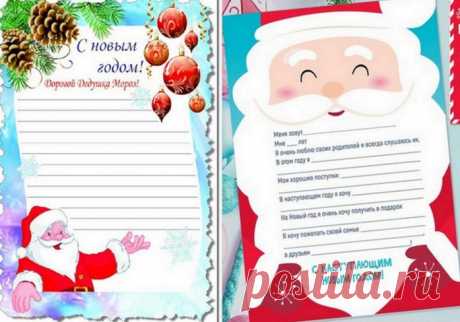 С новым
годом!
Дорогой Дедушка Мороз!
Меня зовут
Мне ___ лет
Я очень люблю своих родителей и всегда слушаюсь их.
В этом году я
Мои хорошие поступки:
В наступающем году я хочу
На Новый год я очень хочу получить в подарок
Я хочу пожелать своей семье
и друзьям
С НАСТУПАЮЩИМ
НОВЫМ ГОДОМ!
postila.ru